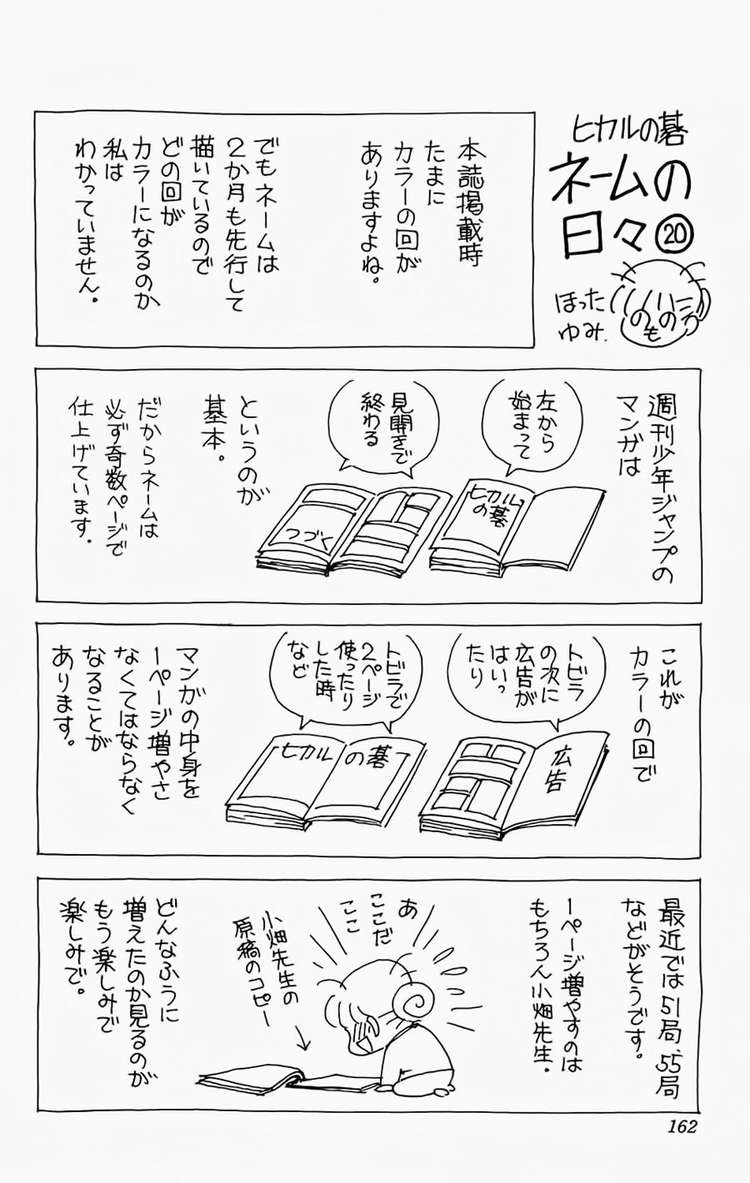 ヒカルの碁
ネームの
日々⑳
ほった
ゆみ.
本誌掲載時
たまに
カラーの回が
ありますよね。
でもネームは
2か月も先行して
描いているので
どの回が
カラーになるのか
私は
わかっていません。
週刊少年ジャンプの
マンガは
左から
始まって
ヒカル
の碁
見開きで
終わる
つづく
というのが
基本。
だからネームは
必ず奇数ページで
仕上げています.
これが
カラーの回で
トビラ
の次に
広告が
はいっ
たり
広告
トビラで
2ページ
使ったり
した時
など
ヒカルの碁
マンガの中身を
1ページ増やさ
なくてはならなく
なることが
あります。
最近では51局、55局
などがそうです。
1ページ増やすのは
もちろん小畑先生.
あ
ここだ
ここ
小畑先生の
原稿のコピー
どんなふうに
増えたのか見るのが
もう楽しみで
楽しみで。
162